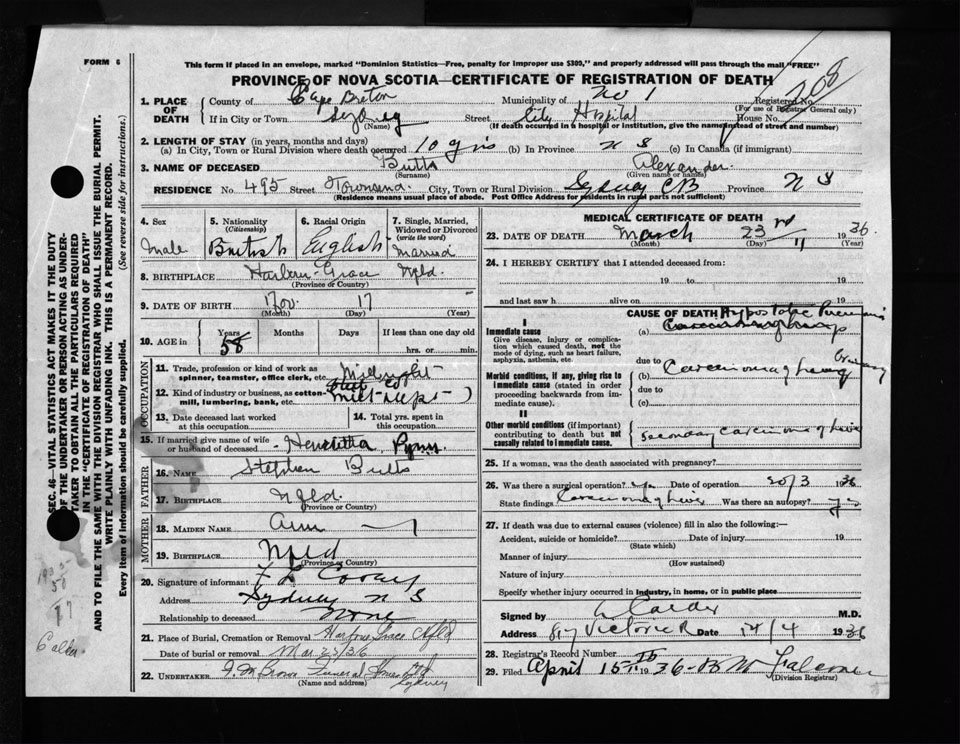 FORM 6
This form if placed in an envelope, marked "Dominion Statistics—Free, penalty for improper use $300," and properly addressed will pass through the mail "FREE"
PROVINCE OF NOVA SCOTIA—CERTIFICATE OF REGISTRATION OF DEATH
208
1. PLACE OF DEATH
County of Cape Breton Municipality of No 1 Registered No.
(For use of Registrar General only)
If in City or Town Sydney Street City Hospital House No.
(Name) (If death occurred in a hospital or institution, give the name instead of street and number)
2. LENGTH OF STAY (in years, months and days)
(a) In City, Town or Rural Division where death occurred 10 yrs (b) In Province N S (c) In Canada (if immigrant)
3. NAME OF DECEASED Butts Alexander.
(Surname) (Given name or names)
RESIDENCE No. 495 Street Townsend City, Town or Rural Division Sydney CB Province N S
(Residence means usual place of abode. Post Office Address for residents in rural parts not sufficient)
4. Sex Male
5. Nationality (Citizenship) British
6. Racial Origin English
7. Single, Married, Widowed or Divorced (write the word) Married
8. BIRTHPLACE Harbour Grace Nfld.
(Province or Country)
9. DATE OF BIRTH Nov. 17
(Month) (Day) (Year)
10. AGE in Years 58 Months Days If less than one day old
hrs. or min.
OCCUPATION
11. Trade, profession or kind of work as spinner, teamster, office clerk, etc. Millwright
12. Kind of industry or business, as cotton-mill, lumbering, bank, etc. Steel Co
13. Date deceased last worked at this occupation
14. Total yrs. spent in this occupation
15. If married give name of wife or husband of deceased Henrietta Pynn
FATHER
16. NAME Stephen Butts
17. BIRTHPLACE Nfld.
(Province or Country)
MOTHER
18. MAIDEN NAME Ann
19. BIRTHPLACE Nfld
(Province or Country)
20. Signature of informant F L
Address Sydney N S
Relationship to deceased None
21. Place of Burial, Cremation or Removal Harbour Grace Nfld
Date of burial or removal Mar 25/36
22. UNDERTAKER Funeral Sydney
(Name and address)
MEDICAL CERTIFICATE OF DEATH
23. DATE OF DEATH March 23rd 1936
(Month) (Day) (Year)
24. I HEREBY CERTIFY that I attended deceased from:
19 to 19
and last saw h alive on 19
CAUSE OF DEATH Hypostatic Pneumonia
I
Immediate cause (a)
Give disease, injury or complication which caused death, not the mode of dying, such as heart failure, asphyxia, asthenia, etc.
due to
Morbid conditions, if any, giving rise to immediate cause (stated in order proceeding backwards from immediate cause).
(b) Carcinoma of
due to
(c)
II
Other morbid conditions (if important) contributing to death but not causally related to immediate cause.
Secondary carcinoma of liver
25. If a woman, was the death associated with pregnancy?
26. Was there a surgical operation? Date of operation 20/3 1936
State findings Carcinoma of liver Was there an autopsy? yes
27. If death was due to external causes (violence) fill in also the following:—
Accident, suicide or homicide? Date of injury 19
(State which)
Manner of injury
(How sustained)
Nature of injury
Specify whether injury occurred in industry, in home, or in public place
Signed by Calder M.D.
Address 817 Victoria R Date 14/4 1936
28. Registrar's Record Number
29. Filed April 15 1936
(Division Registrar)
SEC. 46—VITAL STATISTICS ACT MAKES IT THE DUTY
OF THE UNDERTAKER OR PERSON ACTING AS UNDER-
TAKER TO OBTAIN ALL THE PARTICULARS REQUIRED
IN THE "CERTIFICATE OF REGISTRATION OF DEATH"
AND TO FILE THE SAME WITH THE DIVISION REGISTRAR WHO SHALL ISSUE THE BURIAL PERMIT.
WRITE PLAINLY WITH UNFADING INK. THIS IS A PERMANENT RECORD.
Every item of information should be carefully supplied. (See reverse side for instructions.)
Calder